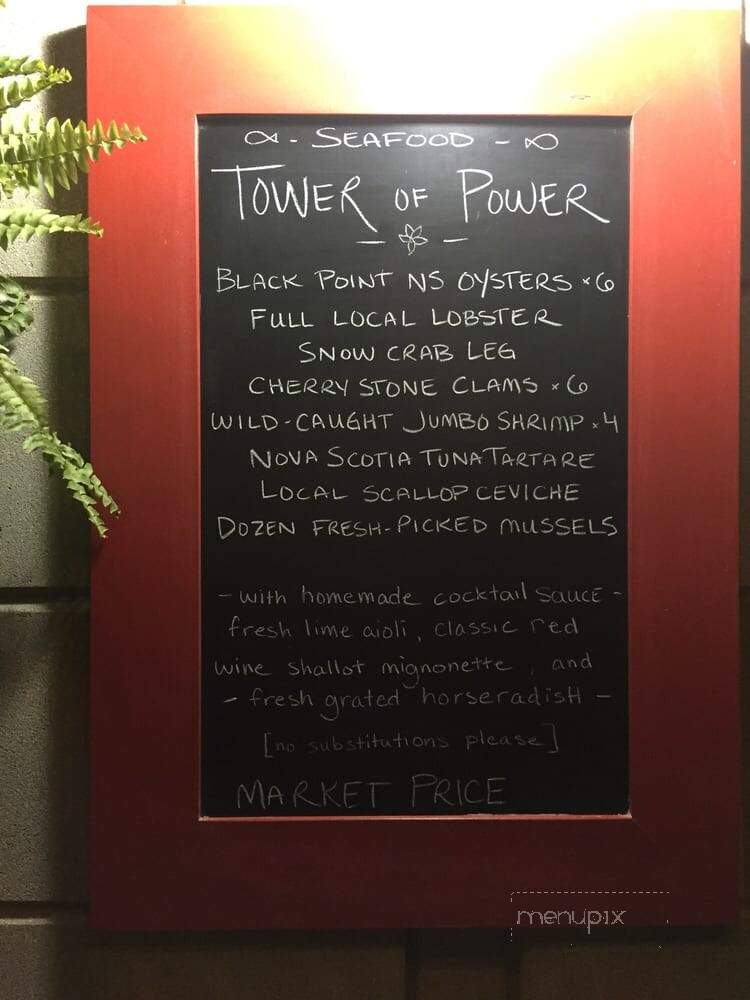 - SEAFOOD -
TOWER OF POWER
BLACK POINT NS OYSTERS ×6
FULL LOCAL LOBSTER
SNOW CRAB LEG
CHERRY STONE CLAMS ×6
WILD-CAUGHT JUMBO SHRIMP ×4
NOVA SCOTIA TUNA TARTARE
LOCAL SCALLOP CEVICHE
DOZEN FRESH-PICKED MUSSELS
- with homemade cocktail SAUCE -
fresh lime aioli, classic red
wine shallot mignonette, and
- fresh grated horseradish -
[no substitutions please]
MARKET PRICE
menupix